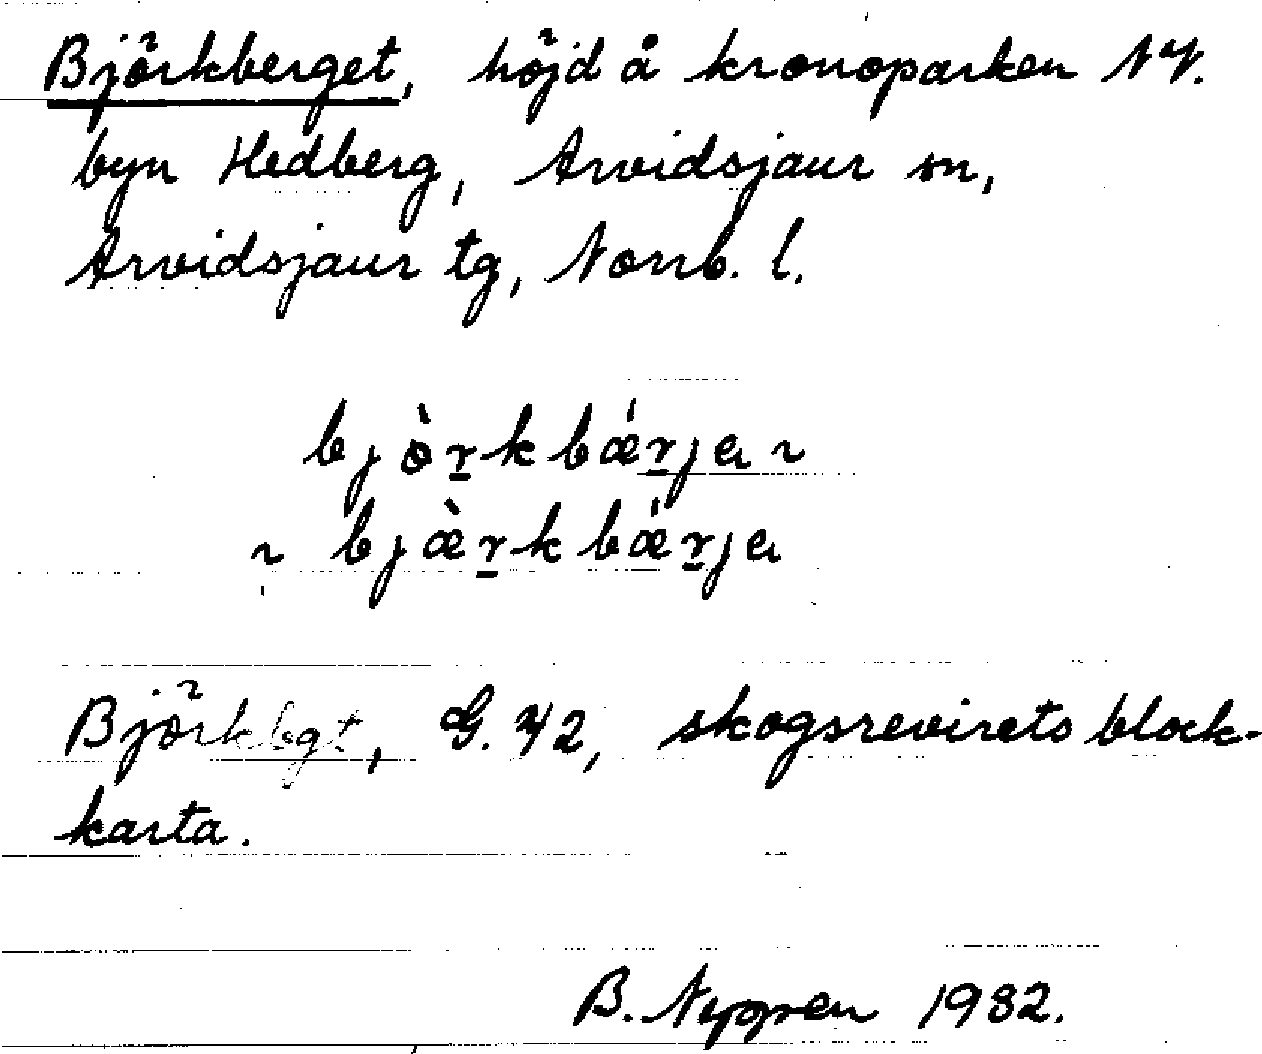 Björkberget, höjd å kronoparken NV.
byn Hedberg, Arvidsjaur sn,
Arvidsjaur tg, Norrb. l.
bjòṟkbǽṟja ~
~ bjæ̀ṟkbǽṟja
Björkbgt, G. 42, skogsrevirets block-
karta.
B. Nygren 1932.